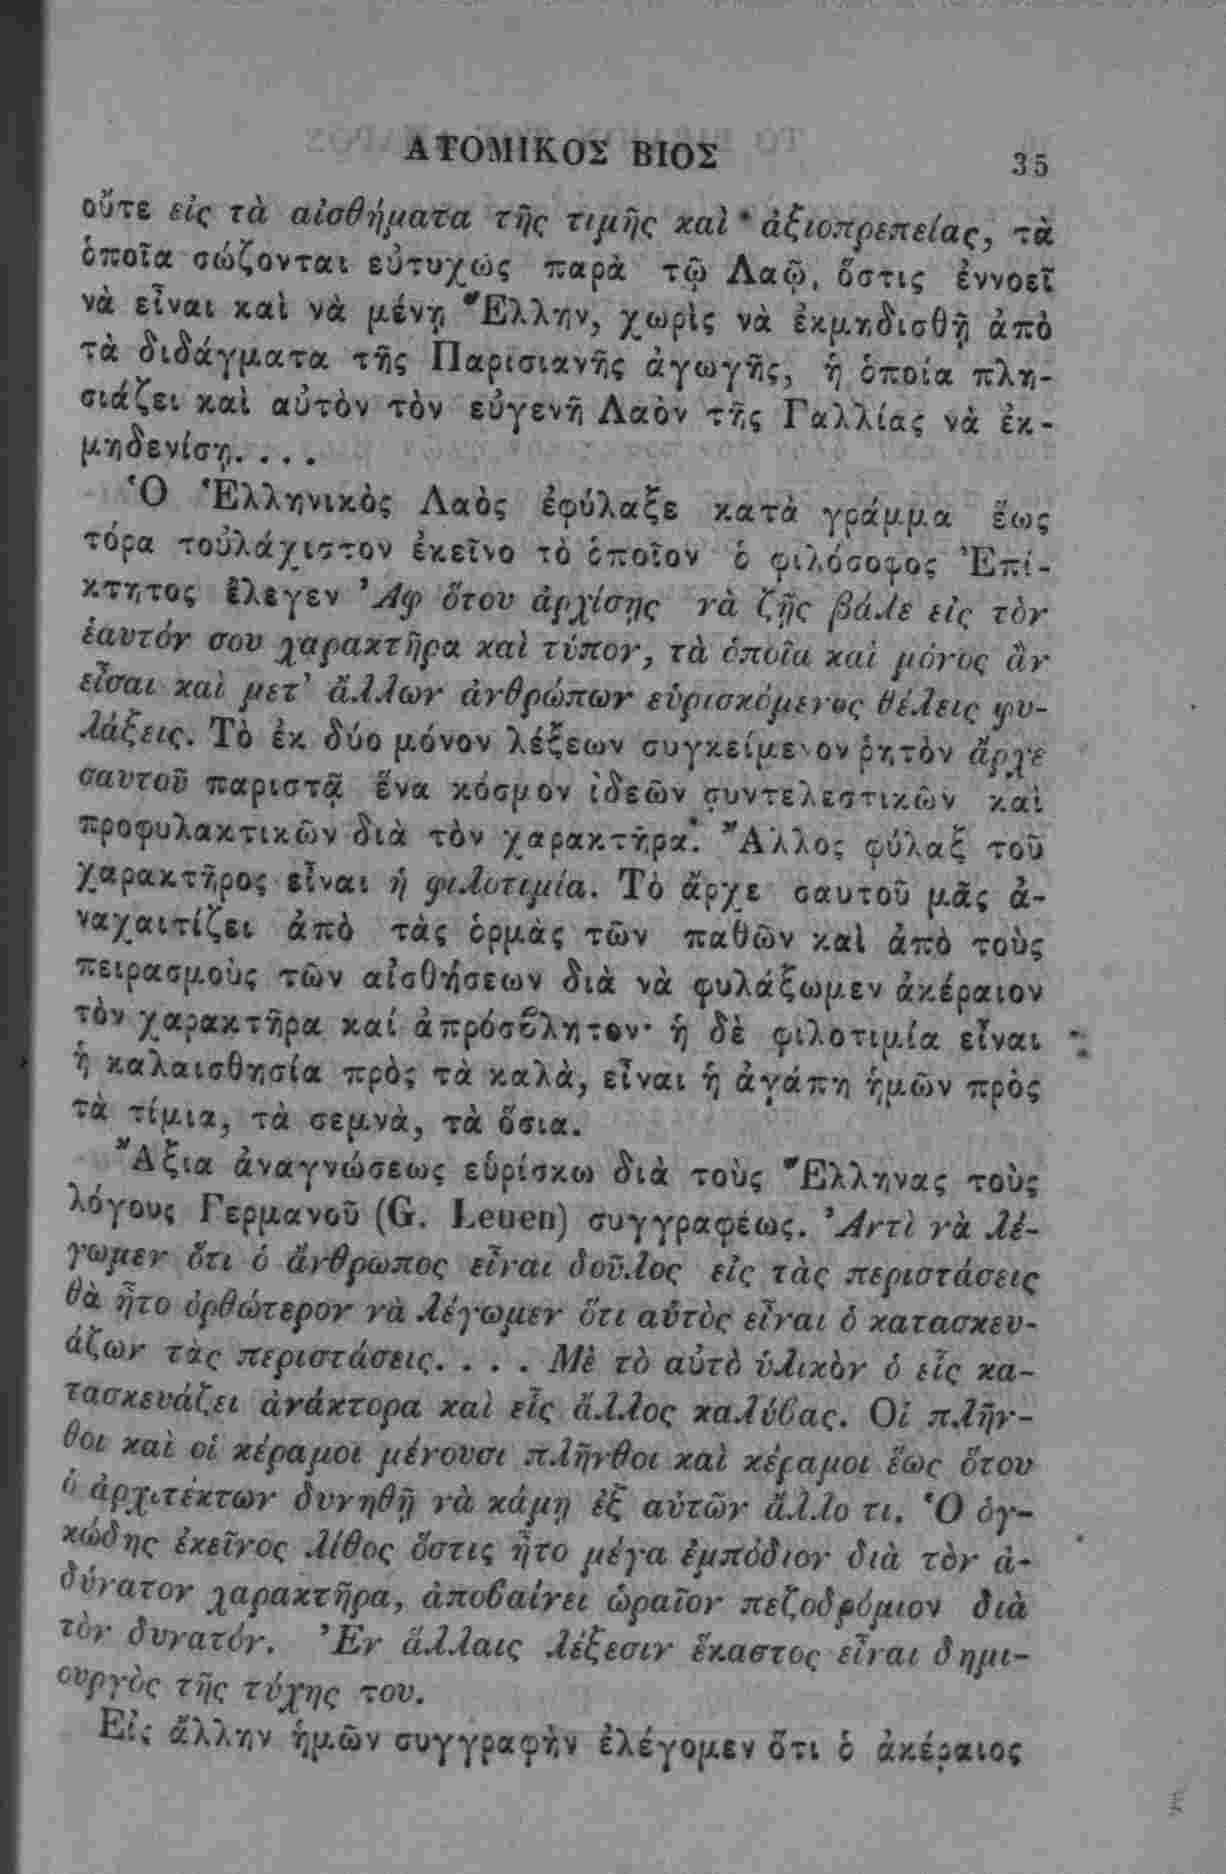 ΑΤΟΜΙΚΟΣ ΒΙΟΣ 35
οὔτε εἰς τὰ αἰσθήματα τῆς τιμῆς καὶ ἀξιοπρεπείας, τὰ
ὁποῖα σώζονται εὐτυχῶς παρὰ τῷ Λαῷ, ὅστις ἐννοεῖ
νὰ εἶναι καὶ νὰ μένῃ Ἕλλην, χωρὶς νὰ ἐκμηδισθῇ ἀπὸ
τὰ διδάγματα τῆς Παρισιανῆς ἀγωγῆς, ἡ ὁποία πλη-
σιάζει καὶ αὐτὸν τὸν εὐγενῆ Λαὸν τῆς Γαλλίας νὰ ἐκ-
μηδενίσῃ. . . .
Ὁ Ἑλληνικὸς Λαὸς ἐφύλαξε κατὰ γράμμα ἕως
τόρα τοὐλάχιστον ἐκεῖνο τὸ ὁποῖον ὁ φιλόσοφος Ἐπί-
κτητος ἔλεγεν Ἀφ ὅτου ἀρχίσῃς νὰ ζῇς βάλε εἰς τὸν
ἑαυτόν σου χαρακτῆρα καὶ τύπον, τὰ ὁποῖα καὶ μόνος ἂν
εἶσαι καὶ μετ' ἄλλων ἀνθρώπων εὑρισκόμενος θέλεις φυ-
λάξεις. Τὸ ἐκ δύο μόνον λέξεων συγκείμενον ῥητὸν ἄρχε
σαυτοῦ παριστᾷ ἕνα κόσμον ἰδεῶν συντελεστικῶν καὶ
προφυλακτικῶν διὰ τὸν χαρακτῆρα. Ἄλλος φύλαξ τοῦ
χαρακτῆρος εἶναι ἡ φιλοτιμία. Τὸ ἄρχε σαυτοῦ μᾶς ἀ-
ναχαιτίζει ἀπὸ τὰς ὁρμὰς τῶν παθῶν καὶ ἀπὸ τοὺς
πειρασμοὺς τῶν αἰσθήσεων διὰ νὰ φυλάξωμεν ἀκέραιον
τὸν χαρακτῆρα καί ἀπρόσβλητον· ἡ δὲ φιλοτιμία εἶναι
ἡ καλαισθησία πρὸς τὰ καλὰ, εἶναι ἡ ἀγάπη ἡμῶν πρὸς
τὰ τίμια, τὰ σεμνὰ, τὰ ὅσια.
Ἄξια ἀναγνώσεως εὑρίσκω διὰ τοὺς Ἕλληνας τοὺς
λόγους Γερμανοῦ (G. Leuen) συγγραφέως. Ἀντὶ νὰ λέ-
γωμεν ὅτι ὁ ἄνθρωπος εἶναι δοῦλος εἰς τὰς περιστάσεις
θὰ ἦτο ὀρθώτερον νὰ λέγωμεν ὅτι αὐτὸς εἶναι ὁ κατασκευ-
άζων τὰς περιστάσεις. . . . Μὲ τὸ αὐτὸ ὑλικὸν ὁ εἷς κα-
τασκευάζει ἀνάκτορα καὶ εἷς ἄλλος καλύβας. Οἱ πλῆν-
θοι καὶ οἱ κέραμοι μένουσι πλῆνθοι καὶ κέραμοι ἕως ὅτου
ὁ ἀρχιτέκτων δυνηθῇ νὰ κάμῃ ἐξ αὐτῶν ἄλλο τι. Ὁ ὀγ-
κώδης ἐκεῖνος λίθος ὅστις ἦτο μέγα ἐμπόδιον διὰ τὸν ἀ-
δύνατον χαρακτῆρα, ἀποβαίνει ὡραῖον πεζοδρόμιον διὰ
τὸν δυνατόν. Ἐν ἄλλαις λέξεσιν ἕκαστος εἶναι δημι-
ουργὸς τῆς τύχης του.
Εἰς ἄλλην ἡμῶν συγγραφὴν ἐλέγομεν ὅτι ὁ ἀκέραιος